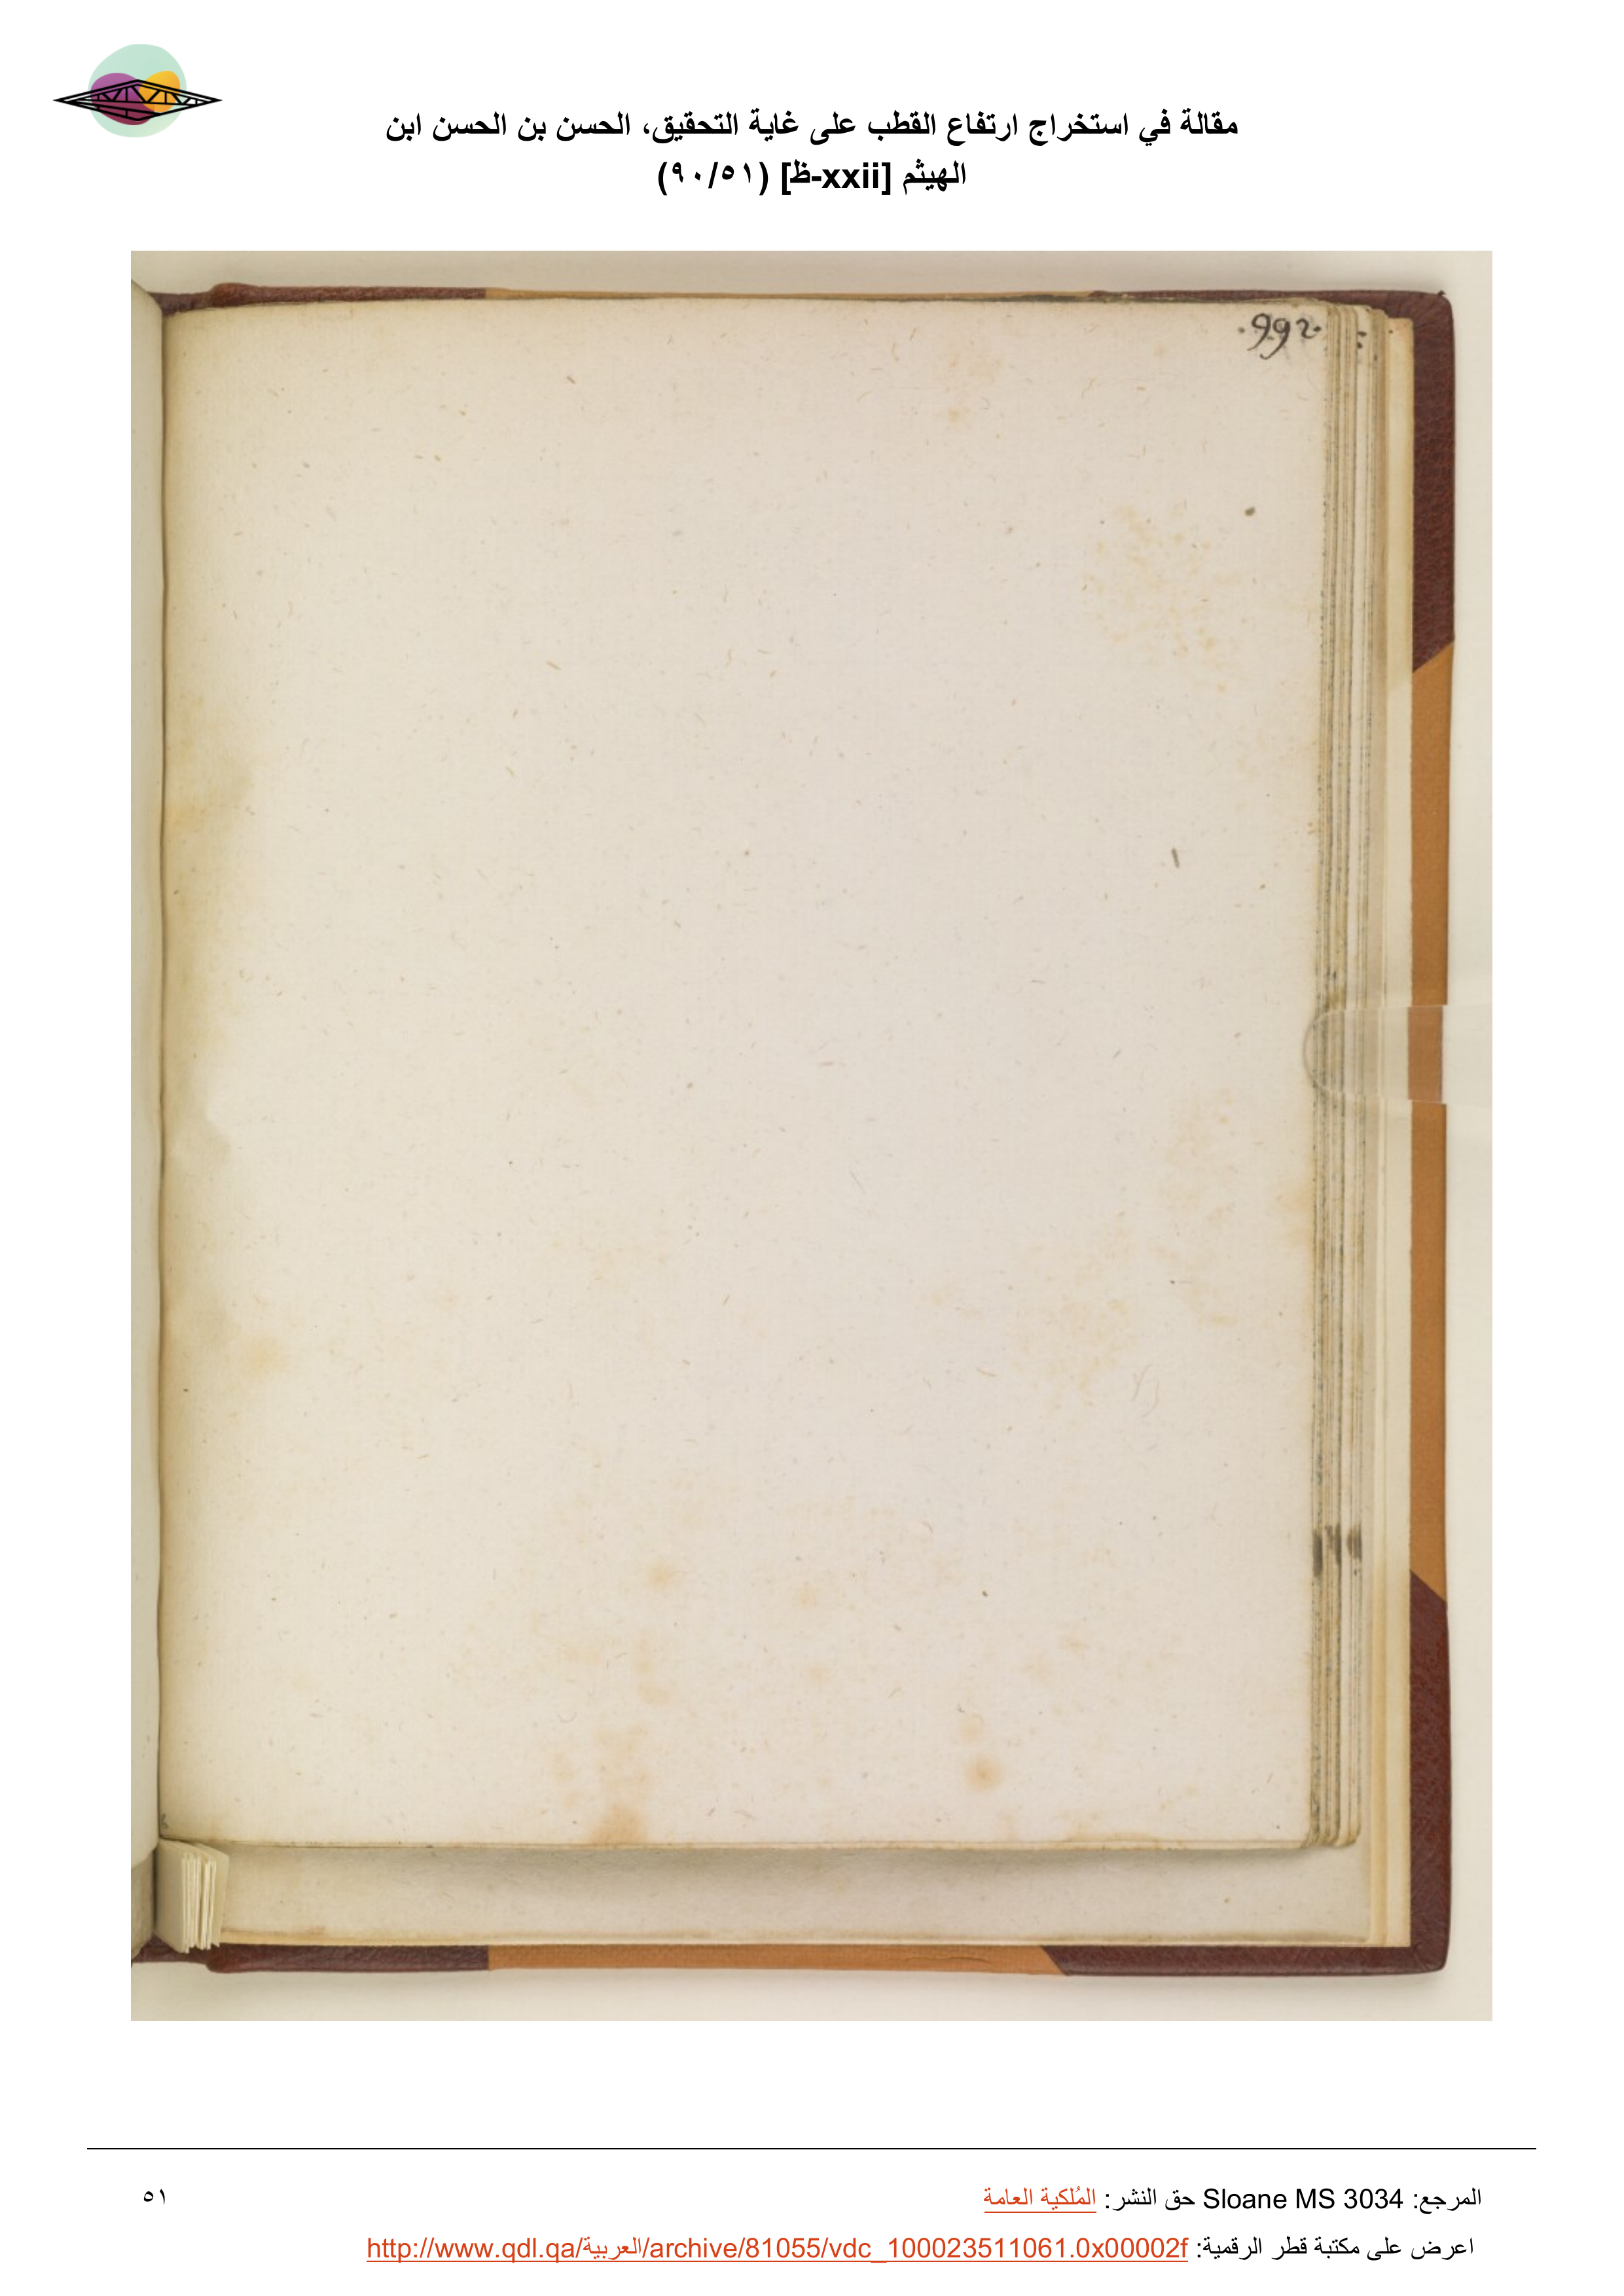 مقالة في استخراج ارتفاع القطب على غاية التحقيق، الحسن بن الحسن ابن
الهيثم [xxii-ظ] (٩٠/٥١)
.992.
المرجع: Sloane MS 3034 حق النشر: المُلكية العامة
٥١
اعرض على مكتبة قطر الرقمية: http://www.qdl.qa/العربية/archive/81055/vdc_100023511061.0x00002f